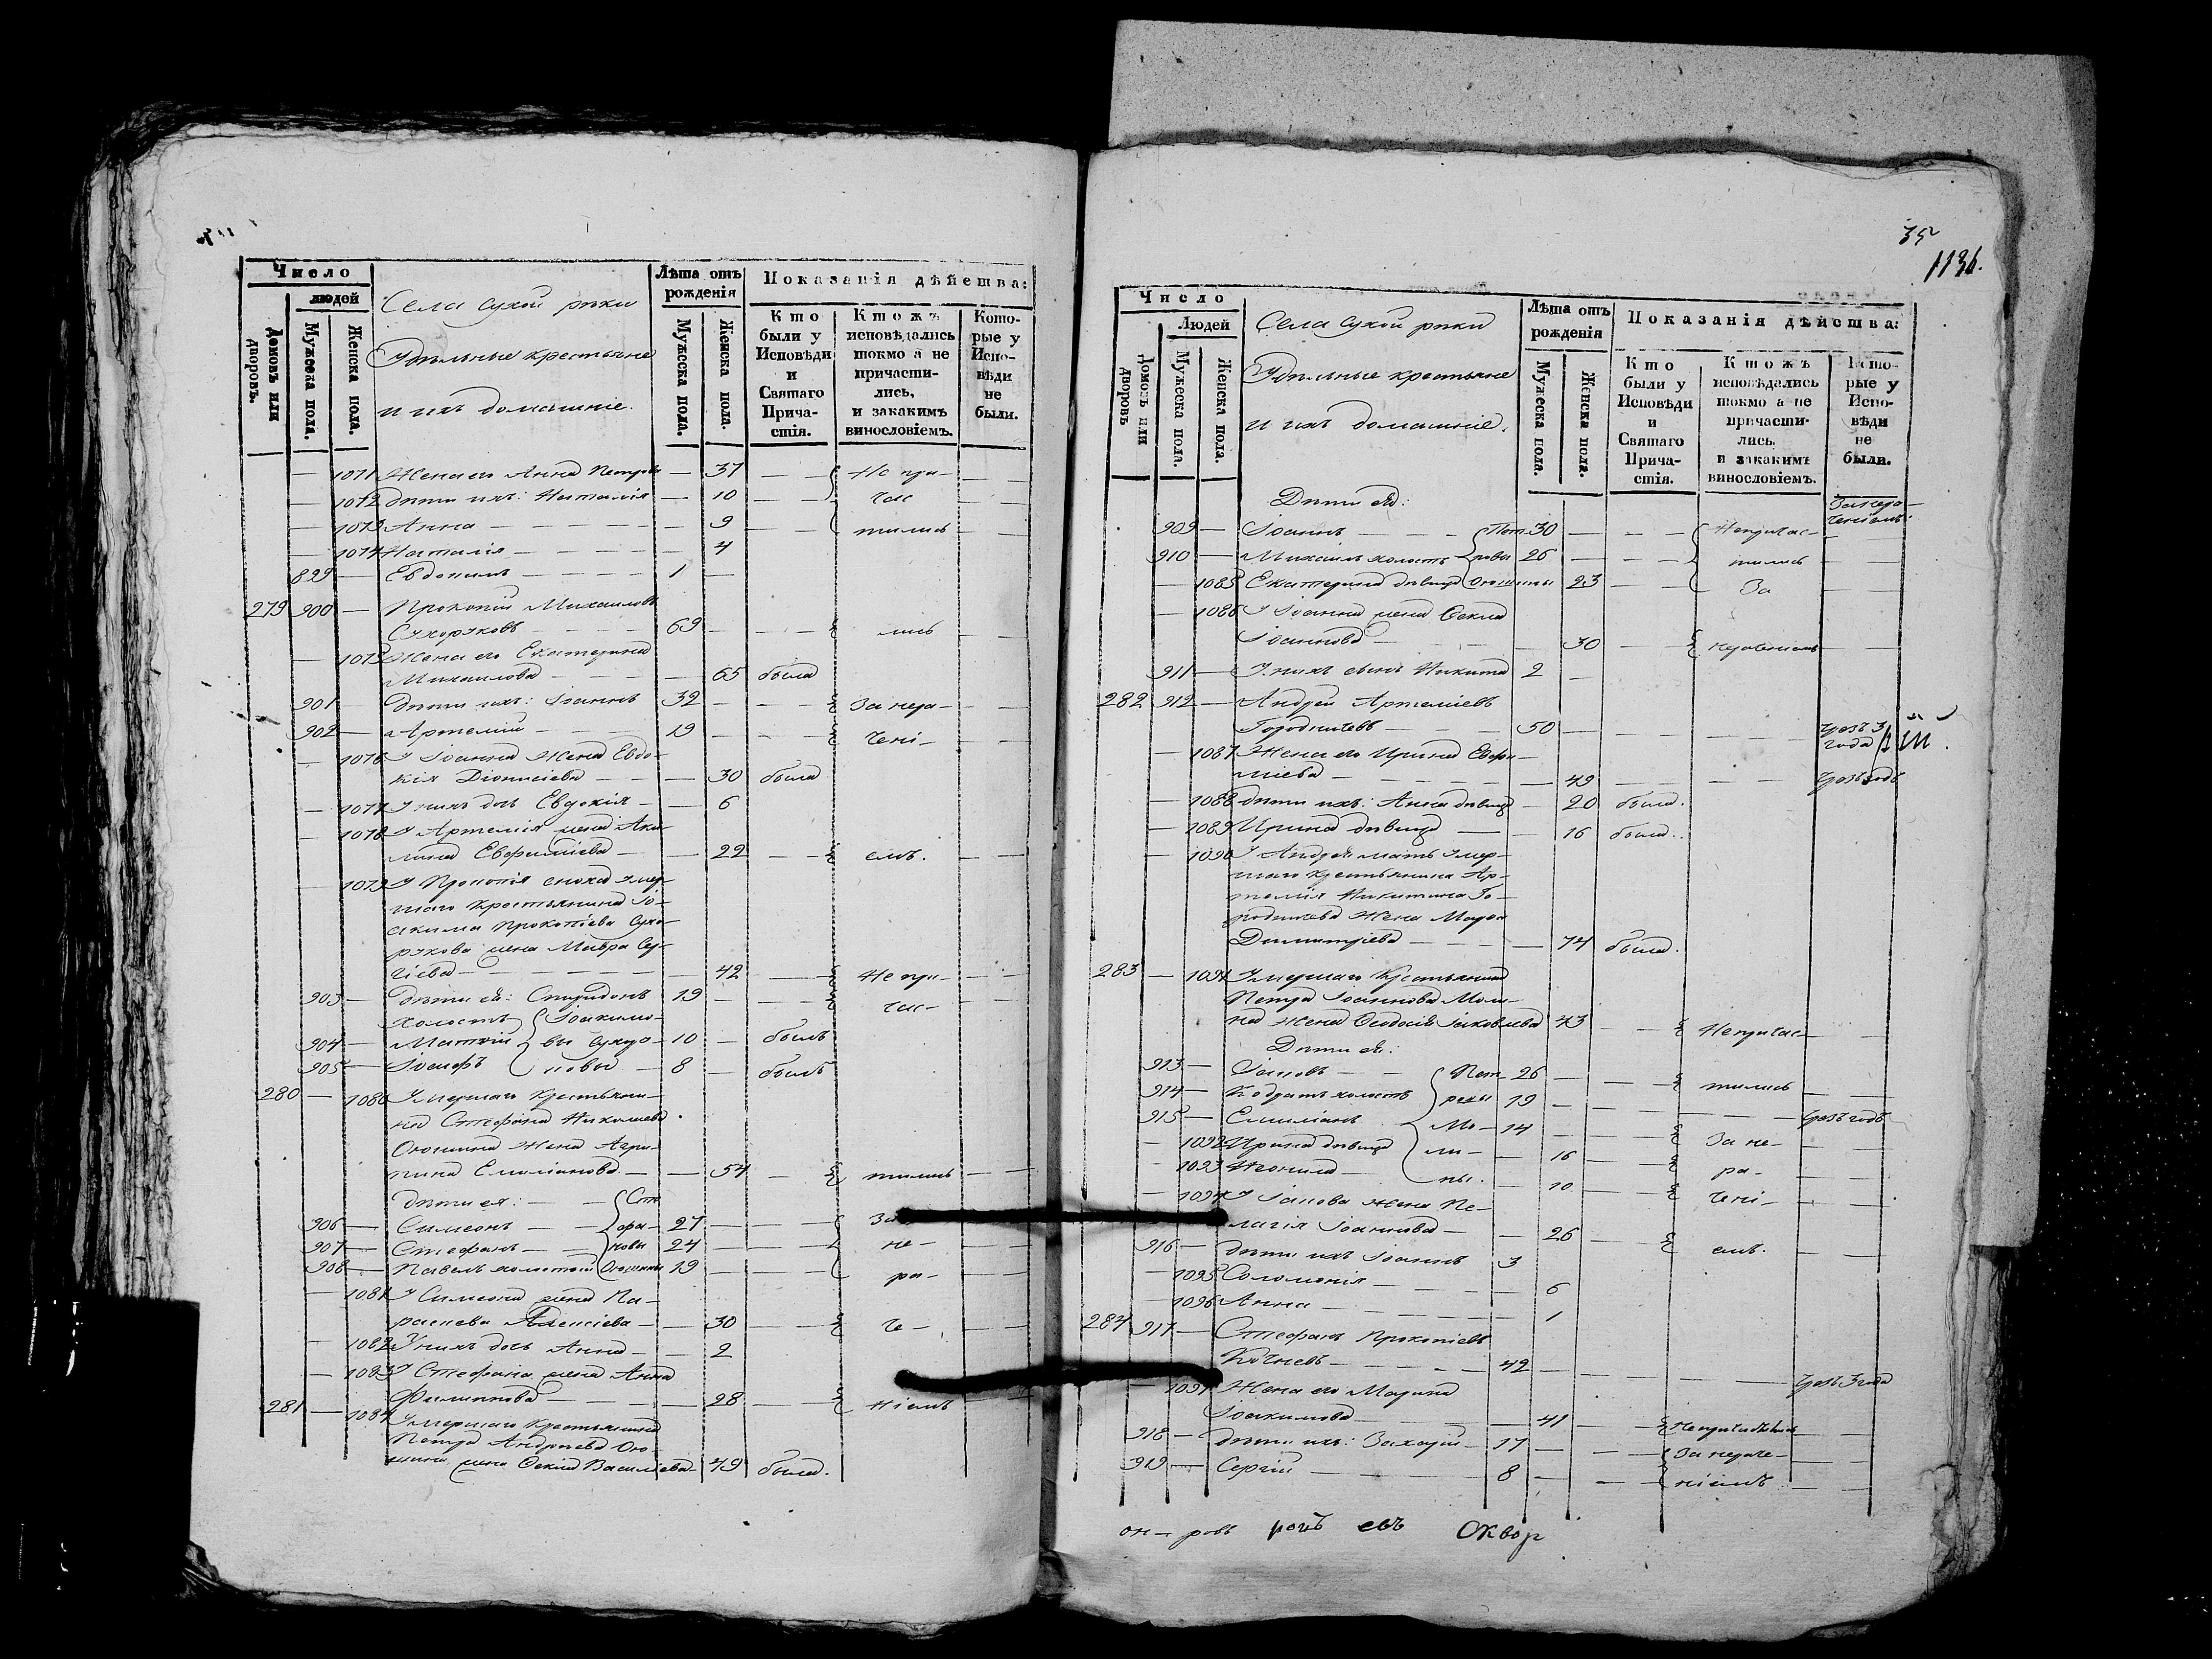 Число
людей
Домовъ или дворовъ.
Мужеска пола.
Женска пола.
Села сухой рѣки
Удѣльные крестьяне
и ихъ домашніе.
Лѣта отъ рожденія
Мужеска пола.
Женска пола.
Показанія дѣйства:
Кто были у Исповѣди и Святаго Причастія.
Кто жъ исповѣдались токмо а не причастились, и закакимъ винословіемъ.
Которые у Исповѣди не были.
— 1071 Жена его Анна Петрова — 37 — — Не при- —
— 1072 Дѣти ихъ: Наталія — 10 — — час —
— 1073 Анна — — 9 — тились —
— 1074 Наталія — — 4
899 — Евдокимъ — 1 —
279 900 — Прокопій Михаиловъ
Сухоруковъ — 69 — — лись —
— 1075 Жена его Екатерина
Михаилова — — 65 была
901 — Дѣти ихъ: Іоаннъ 32 — — За нера- —
902 — Артемій — 19 — — чені- —
— 1076 У Іоанна жена Евдо-
кія Діонисіева — — 30 была
— 1077 У нихъ дочь Евдокія — — 6
— 1078 У Артемія жена Аки-
лина Евфиміева — — 22 — емъ. —
— 1079 У Прокопія сноха умер-
шаго крестьянина Іо-
акима Прокопіева Сухо-
рукова жена Мавра Сер-
гіева — — 42 — Не при- —
903 — Дѣти ея: Спиридонъ 19 — — час-
холостъ Іоакимо-
904 — Матѳій вы Сухор- 10 — былъ
905 — Іосифъ ковы — 8 — былъ
280 — 1080 Умершаго крестьяни-
на Стефана Николаева
Оюшина жена Агри-
пина Емиліанова — — 54 — тились —
дѣти ея: — Сте
906 — Симеонъ — фа- 27 — — За
907 — Стефанъ — новы 24 — — не-
908 — Павелъ холостой Оюшины 19 — — ра-
— 1081 У Симеона жена Па-
раскева Алексіева — — 30 — че- —
— 1082 У нихъ дочь Анна — — 2
— 1083 У Стефана жена Анна
Филиппова — — 28 — ніемъ
281 — 1084 Умершаго крестьянина
Петра Андреева Ою-
шина жена Ѳекла Василіева — 49 была.
35
1136.
Число
Людей
Домовъ или дворовъ
Мужеска пола.
Женска пола.
Села сухой рѣки
Удѣльные крестьяне
и ихъ домашніе.
Лѣта отъ рожденія
Мужеска пола.
Женска пола.
Показанія дѣйства:
Кто были у Исповѣди и Святаго Причастія.
Кто жъ исповѣдались токмо а не причастились, и закакимъ винословіемъ.
Которые у Исповѣди не были.
Дѣти ея:
909 — Іоаннъ — Пет- 30 — — Непричас- —
910 — Михаилъ холостъ ровы 26 — — тились —
— 1085 Екатерина дѣвица Оюшины 23 — За —
— 1086 У Іоанна жена Ѳекла
Іоаннова — — 30 — нераченіемъ —
911 — У нихъ сынъ Никита 2 —
282 912 — Андрей Артеміевъ
Городничевъ — 50 — — — чрезъ 3 года
— 1087 Жена его Ирина Евфи-
міева — — 49 — — чрезъ годъ
— 1088 дѣти ихъ: Анна дѣвица — 20 была.
— 1089 Ирина дѣвица — — 16 была.
— 1090 У Андрея мать умер-
шаго крестьянина Ар-
темія Никитина Го-
родничева жена Марѳа
Димитріева — — 74 была.
283 — 1091 Умершаго крестьянина
Петра Іоаннова Моли-
на жена Ѳеодосія Іаковлева 43 — Непричас- —
Дѣти ея:
913 — Іаковъ — Пет- 26 — — тились —
914 — Кодратъ холостъ ровы 19 — — —
915 — Емиліанъ Мо- 14 — — чрезъ годъ
— 1092 Ирина дѣвица ли- — 16 — За не- —
— 1093 Неонила — ны. — 10 — ра- —
— 1094 У Іакова жена Пе- чені-
лагія Іоаннова — — 26 — емъ. —
916 — дѣти ихъ Іоаннъ 3
— 1095 Соломонія — — 6
— 1096 Анна — — 1
284 917 — Стефанъ Прокопіевъ
Кочневъ — 42 — — — чрезъ 3 года
— 1097 Жена его Марина
Іоакимова — — 41 — Непричастились —
918 — дѣти ихъ: Захарій — 17 — — За нераче- —
919 — Сергій — 8 — — ніемъ —